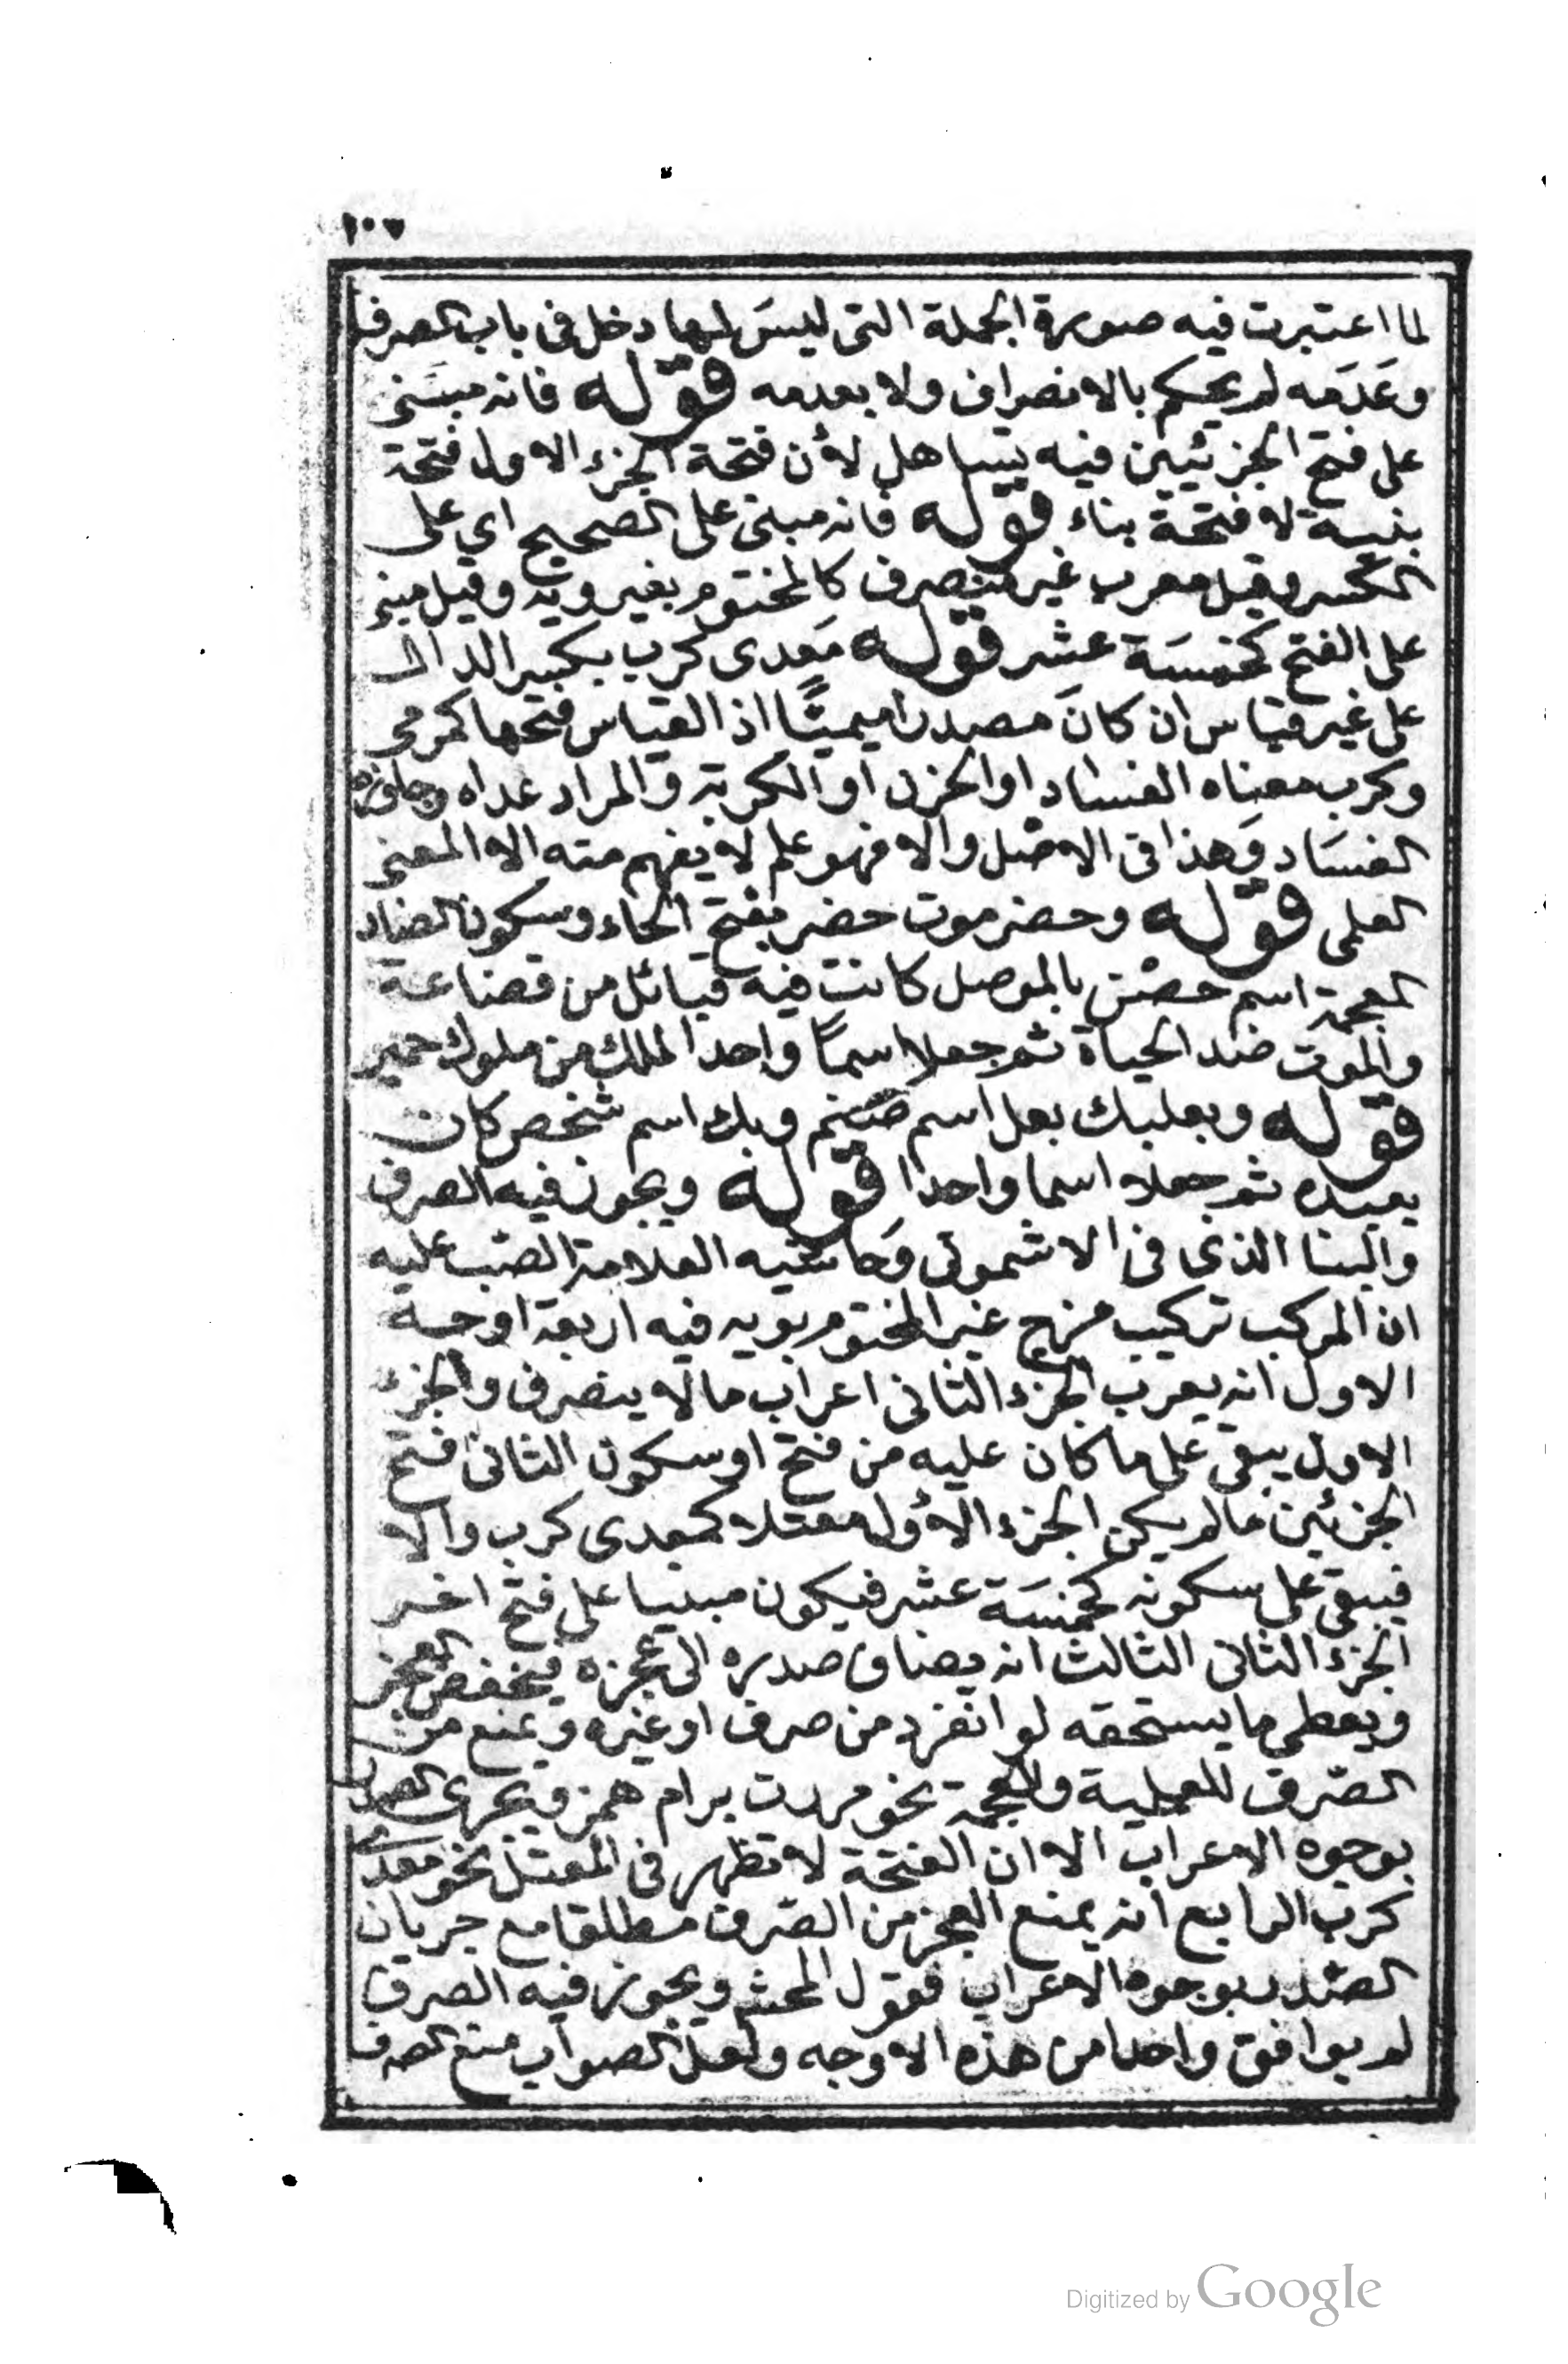 ١٠٧
لما اعتبرت فيه صورة الجملة التى ليسَ لها دخل فى باب الصرف
وعَدَمه لم يحكم بالانصراف ولا بعدمه قوله فانه مبنى
على فتح الجزئين فيه تساهل لأن فتحة الجزء الاول فتحة
بنية لا فتحة بناء قوله فانه مبنى على الصحيح اي على
الكسر وقيل معرب غير منصرف كالمختوم بغير ويه وقيل مبنى
على الفتح كخمسَة عشر قوله مَعدى كرب بكسر الدال
على غير قياس ان كانَ مصدرا ميميًّا اذ القياس فتحها كمرمى
وكرب معناه الفساد او الحزن او الكربة والمراد عداه وجاوزه
الفسَاد وَهذا فى الاصْل والا فهو علم لا يفهم منه الا المعنى
العلمى قوله وحضرموت حضر بفتح الحاء وسكون الضاد
المعجمة اسم حصْن بالموصل كانت فيه قبائل من قضاعة
والموت ضد الحياة ثم جعلا اسمًا واحدا لملك من ملوك حمير
قوله وبعلبك بعل اسم صَنم وبك اسم شخص كان
يعبده ثم جعلا اسما واحدا قوله ويجوز فيه الصرف
والبنا الذى فى الاشمونى وَحاشيه العلامة الصّب عليه
ان المركب تركيب مزج غير المختوم بويه فيه اربعة اوجه
الاول انه يعرب الجزء الثانى اعراب ما لا ينصرف والجزء
الاول يبقى على ما كان عليه من فتح او سكون الثانى فتح
الجزئين ما لم يكن الجزء الأول معتلا كمعدى كرب والا
فيبقى على سكونه كخمسَة عشر فيكون مبنيا على فتح اخر
الجزء الثانى الثالث انه يضاف صدره الى عجزه فيخفض العجز
ويعطى ما يستحقه لو انفرد من صرف او غيره ويمنع من
الصّرف للعلمية والعجمة نحو مررت برام همز ويجرى الصدر
بوجوه الاعراب الا ان الفتحة لا تظهر فى المعتل نحو معدى
كرب الرابع انه يمنع العجز من الصّرف مطلقا مع جريان
الصّدر بوجوه الاعراب فقول المحشى ويجوز فيه الصرف
لم يوافق واحدا من هذه الاوجه ولعل الصواب منع الصرف
Digitized by Google